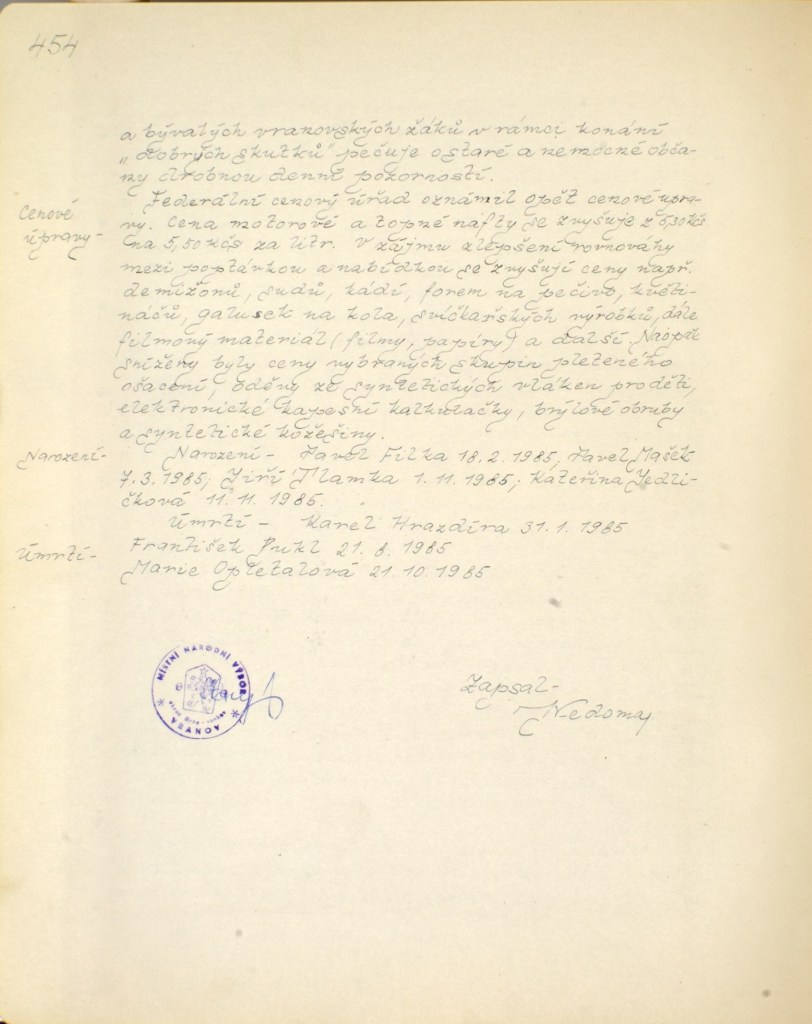 454
a bývalých vranovských žáků v rámci konání
„dobrých skutků" pečuje o staré a nemocné obča-
ny drobnou denní pozorností.
Cenové
úpravy-
Federální cenový úřad oznámil opět cenové úpra-
vy. Cena motorové a topné nafty se zvyšuje z
na 5,50 kčs za litr. V zájmu zlepšení rovnováhy
mezi poptávkou a nabídkou se zvyšují ceny např.
demižonů, sudů, kádí, forem na pečivo, květi-
náčů, galusek na kola, svíčkařských výrobků, dále
filmový materiál (filmy, papíry) a další. Naopak
sníženy byly ceny vybraných skupin pleteného
ošacení, oděvy ze syntetických vláken pro děti,
elektronické kapesní kalkulačky, brýlové obruby
a syntetické kožešiny.
Narození-
Narození - Pavel Filka 18.2.1985, Pavel Mašek
7.3.1985; Jiří Tlamka 1.11.1985; Kateřina Jedli-
čková 11.11.1985.
Úmrtí - Karel Hrazdíra 31.1.1985
Úmrtí-
František Pukl 21.8.1985
Marie Opletalová 21.10.1985
MÍSTNÍ NÁRODNÍ VÝBOR
VRANOV
Zapsal-
Nedoma